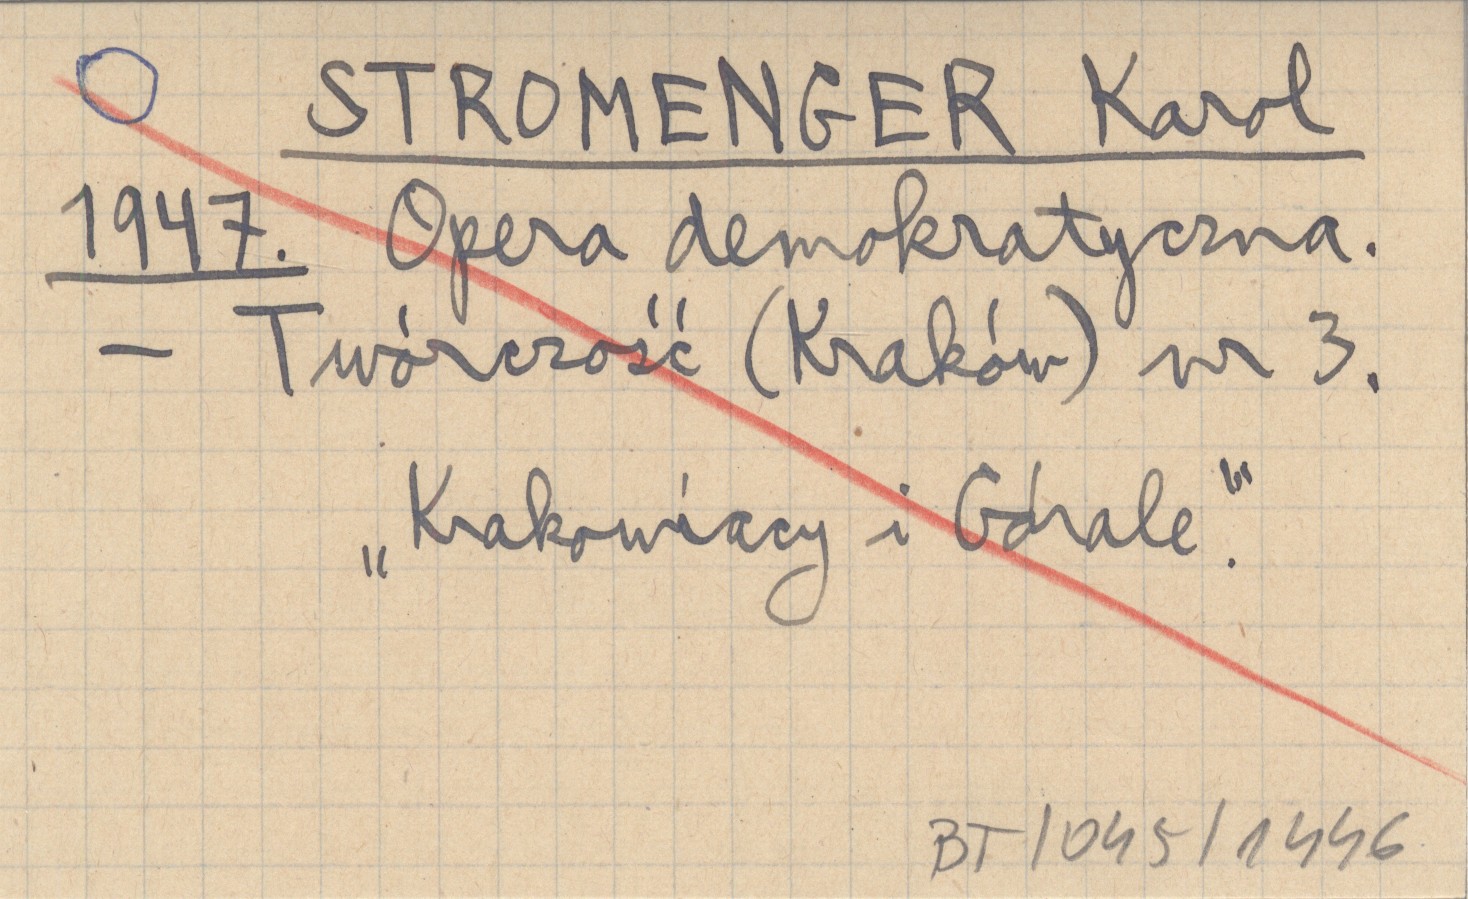 STROMENGER Karol
1947. Opera demokratyczna.
– Twórczość (Kraków) nr 3.
„Krakowiacy i Górale".
BT/045/1446